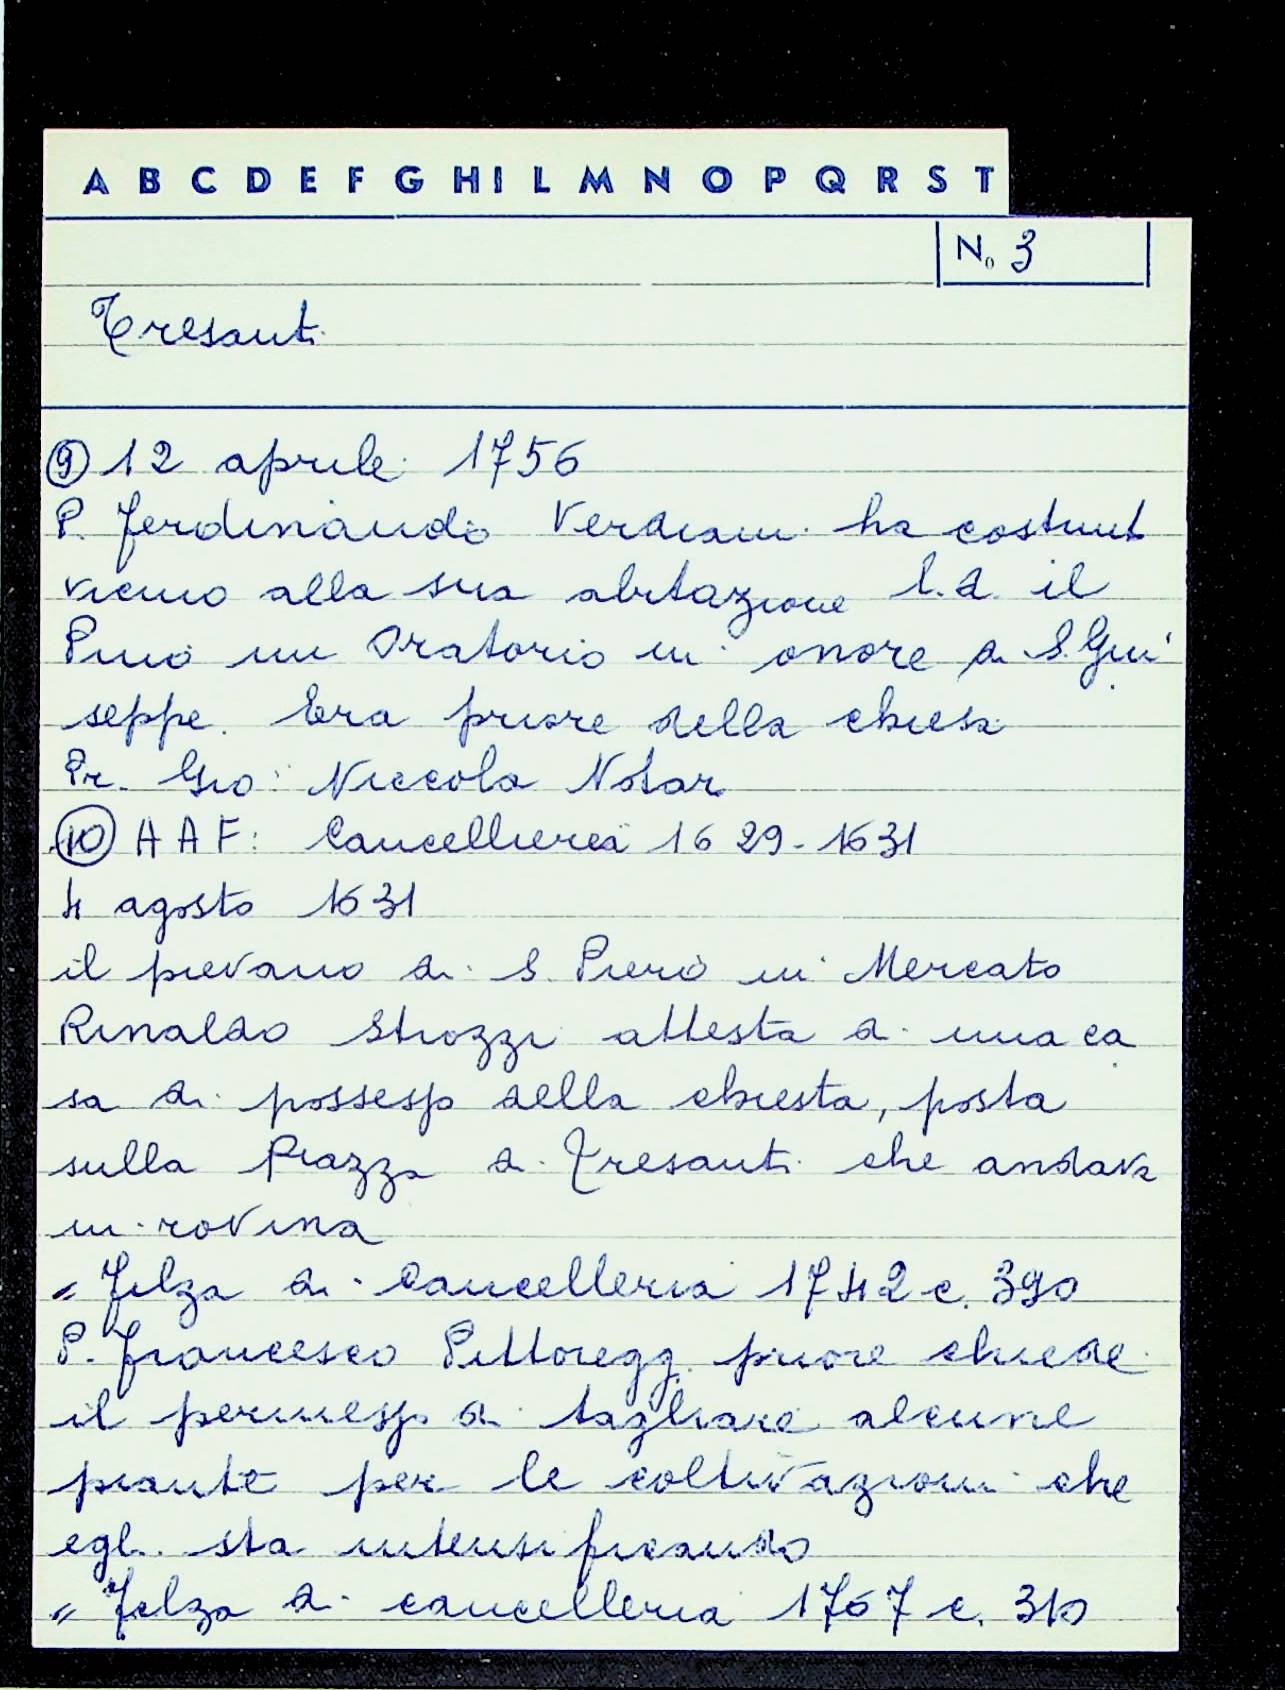 A B C D E F G H I L M N O P Q R S T
N. 3
Tresanti
9 12 aprile 1756
P. Ferdinando Verdiani ha costruit
vicino alla sua abitazione l.d. il
Pino un oratorio in onore di S. Giu
seppe. Era priore della chiesa
Pr. Gio: Niccola Notar
10 A A F: Cancelliereia 1629-1631
4 agosto 1631
il pievano di S. Piero in Mercato
Rinaldo Strozzi attesta di una ca
sa di possesso della chiesta, posta
sulla Piazza di Tresanti che andava
in rovina
" Filza di Cancelleria 1742 c. 390
P. Francesco Pittoregg. priore chiede
il permesso di tagliare alcune
piante per le coltivazioni che
egli sta intensificando
" Filza di cancelleria 1767 c. 310